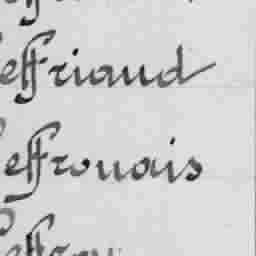 effriaud
effrouais